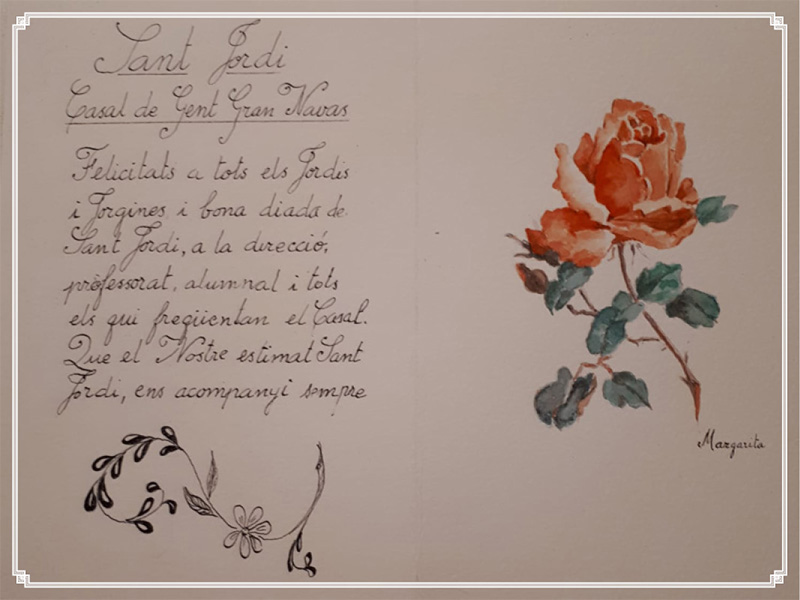 Sant Jordi
Casal de Gent Gran Navas
Felicitats a tots els Jordis
i Jorgines i bona diada de
Sant Jordi, a la direcció,
professorat, alumnat i tots
els qui freqüentan el Casal.
Que el Nostre estimat Sant
Jordi, ens acompanyi sempre
Margarita